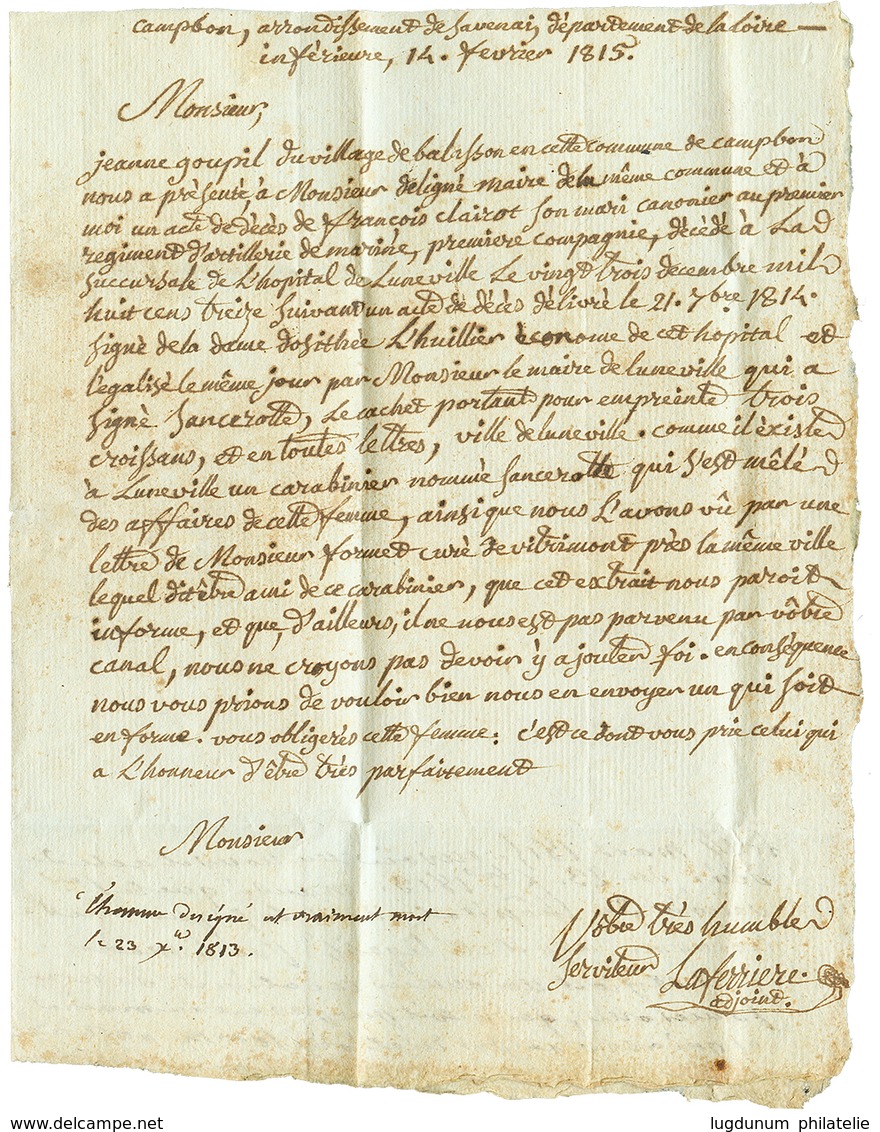 campbon, arrondissement de Savenai, département de la loire —
inférieure, 14. fevrier 1815.
Monsieur,
jeanne goupil du village de balisson en cette commune de campbon
nous a présenté, à Monsieur deligné maire de la même commune et à
moi un acte de décès de françois clairot son mari canonier au premier
regiment d'artillerie de marine, premiere compagnie, décédé à La
succursale de L'hopital de Luneville Le vingt trois decembre mil
huit cens treize suivant un acte de décès délivré le 21. 7bre 1814.
signé de la dame dosithée L'huillier économe de cet hopital et
légalisé le même jour par Monsieur le maire de luneville qui a
signé Sancerotte, Le cachet portant pour empreinte trois
croissans, et en toutes lettres, ville de luneville. comme il éxiste
à Luneville un carabinier nommé Sancerotte qui s'est mêlé
des affaires de cette femme, ainsi que nous L'avons vû par une
lettre de Monsieur formet curé de vitrimont près la même ville
lequel dit être ami de ce carabinier, que cet extrait nous paroit
informe, et que, d'ailleurs, il ne nous est pas parvenu par vôtre
canal, nous ne croyons pas devoir y ajouter foi. en conséquence
nous vous prions de vouloir bien nous en envoyer un qui soit
en forme. vous obligerés cette femme: c'est ce dont vous prie celui qui
a L'honneur d'être très parfaitement
Monsieur
L'homme designé est vraiment mort
le 23 Xbre 1813.
Vôtre très humble
Serviteur Laferriere.
adjoint.
www.delcampe.net
lugdunum philatelie